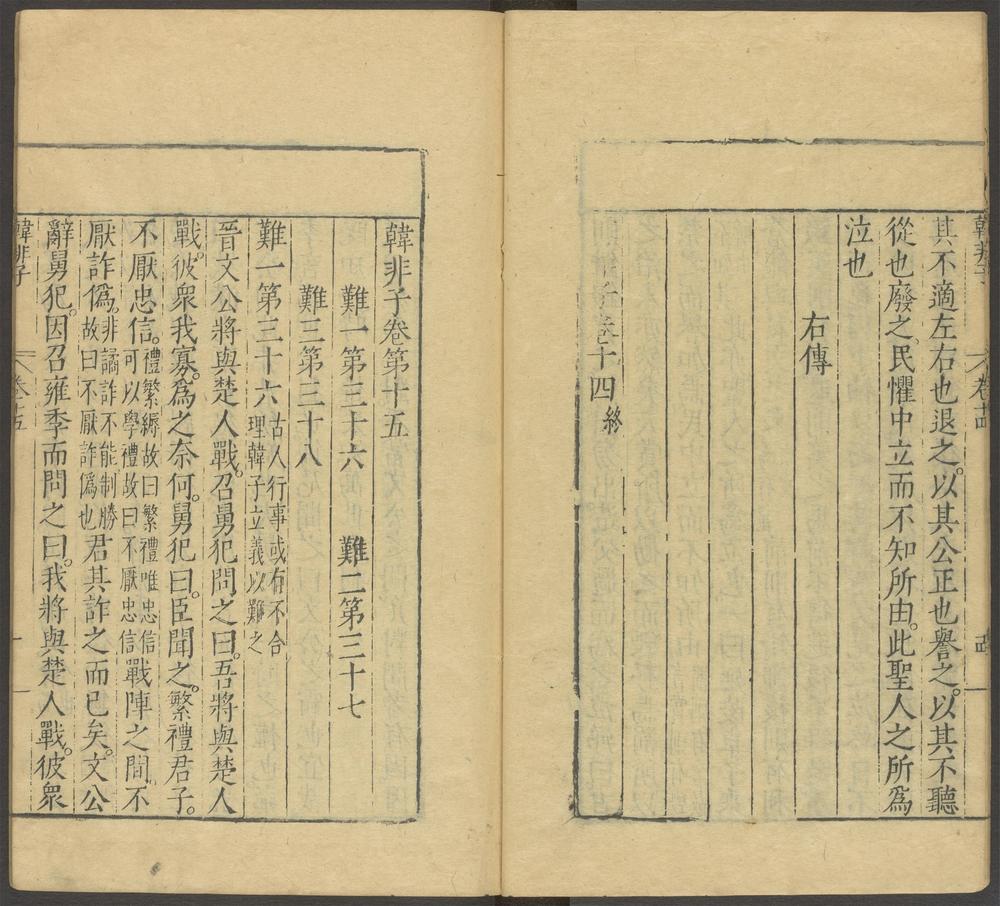 其不適左右也退之。以其公正也譽之。以其不聽
從也廢之。民懼中立而不知所由。此聖人之所爲
泣也
右傳
卷十四終
韓非子卷第十五
難一第三十六　難二第三十七
難三第三十八
難一第三十六古人行事或有不合
理韓子立義以難之
晉文公將與楚人戰。召舅犯問之曰。吾將與楚人
戰。彼衆我寡。爲之奈何。舅犯曰。臣聞之。繁禮君子。
不厭忠信。禮繁縟故曰繁禮唯忠信
可以學禮故曰不厭忠信戰陣之間。不
厭詐僞。非譎詐不能制勝
故曰不厭詐僞也君其詐之而已矣。文公
辭舅犯。因召雍季而問之曰。我將與楚人戰。彼衆
韓非子
卷十五